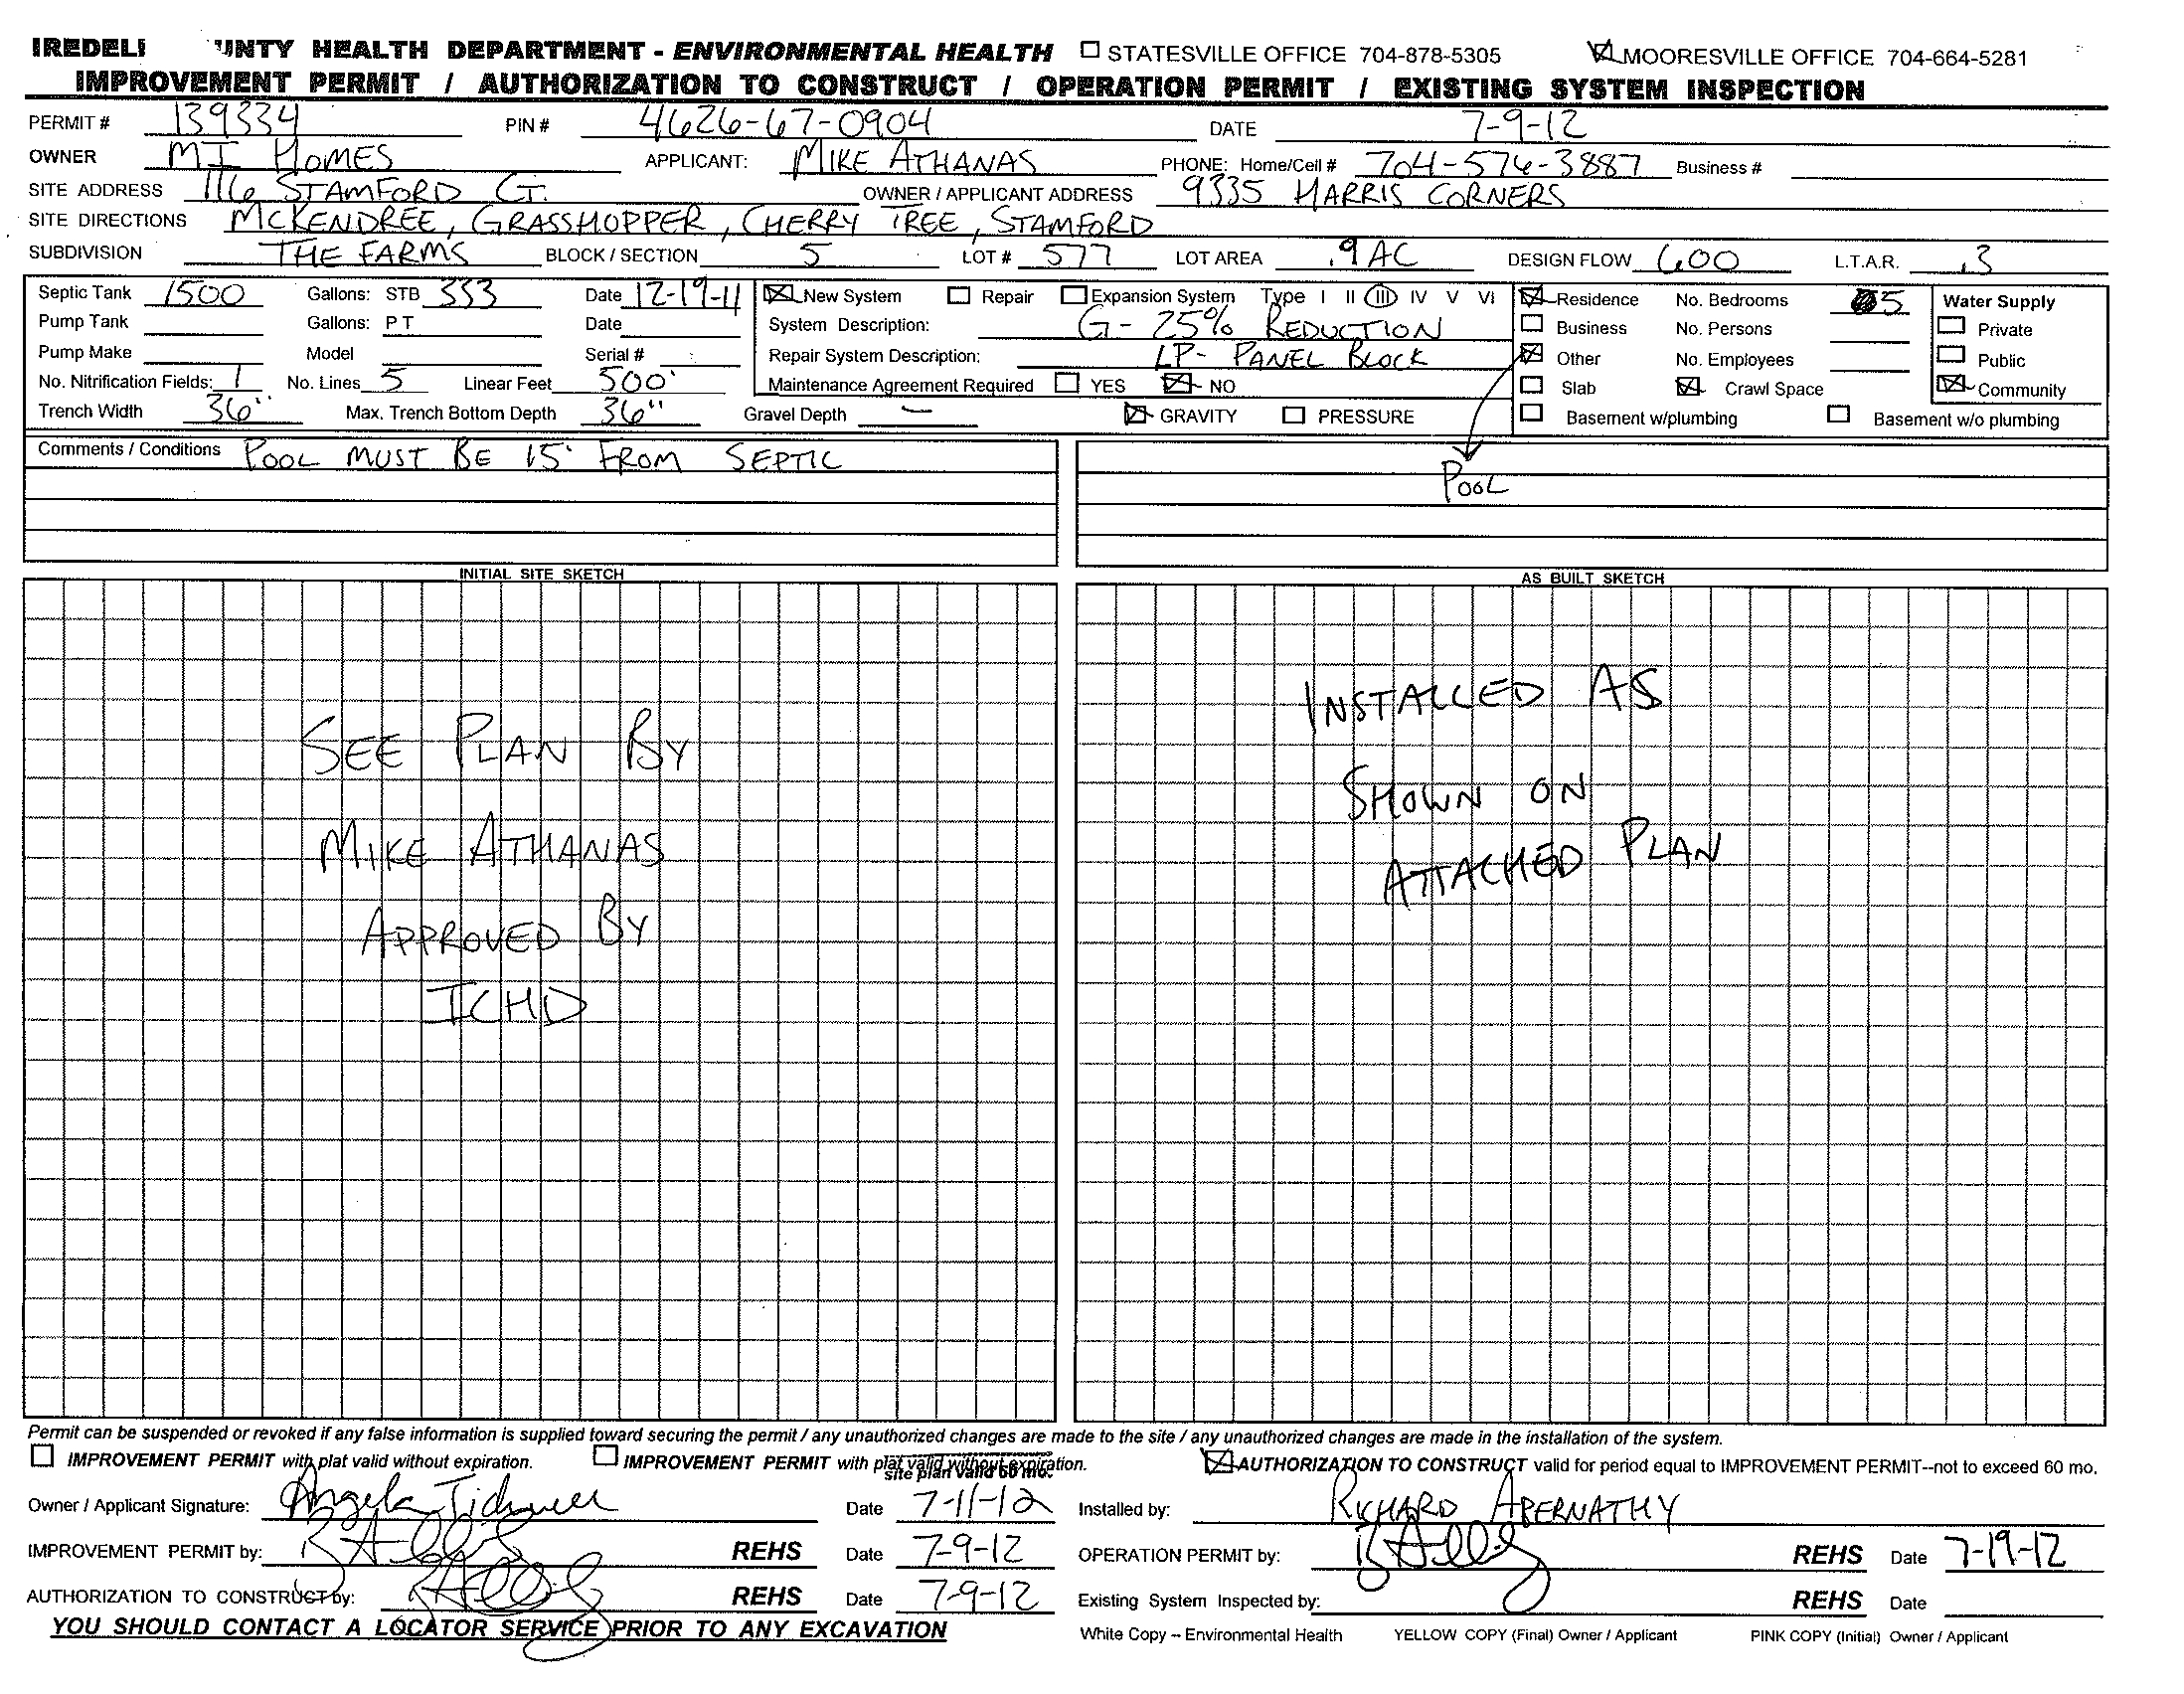 IREDELL UNTY HEALTH DEPARTMENT - ENVIRONMENTAL HEALTH STATESVILLE OFFICE 704-878-5305 MOORESVILLE OFFICE 704-664-5281
IMPROVEMENT PERMIT / AUTHORIZATION TO CONSTRUCT / OPERATION PERMIT / EXISTING SYSTEM INSPECTION
PERMIT # 139334 PIN # 4626-67-0904 DATE 7-9-12
OWNER MI HOMES APPLICANT: MIKE ATHANAS PHONE: Home/Cell # 704-576-3887 Business #
SITE ADDRESS 116 STAMFORD CT. OWNER / APPLICANT ADDRESS 9335 HARRIS CORNERS
SITE DIRECTIONS MCKENDREE, GRASSHOPPER, CHERRY TREE, STAMFORD
SUBDIVISION THE FARMS BLOCK / SECTION 5 LOT # 577 LOT AREA .9 AC DESIGN FLOW 600 L.T.A.R. .3
Septic Tank 1500 Gallons: STB 333 Date 12-19-11 New System Repair Expansion System Type I II III IV V VI Residence No. Bedrooms 5 Water Supply
Pump Tank Gallons: P T Date System Description: G- 25% REDUCTION Business No. Persons Private
Pump Make Model Serial # Repair System Description: LP- PANEL BLOCK Other No. Employees Public
No. Nitrification Fields: 1 No. Lines 5 Linear Feet 500' Maintenance Agreement Required YES NO Slab Crawl Space Community
Trench Width 36" Max. Trench Bottom Depth 36" Gravel Depth — GRAVITY PRESSURE Basement w/plumbing Basement w/o plumbing
Comments / Conditions POOL MUST BE 15' FROM SEPTIC
POOL
INITIAL SITE SKETCH
SEE PLAN BY
MIKE ATHANAS
APPROVED BY
ICHD
AS BUILT SKETCH
INSTALLED AS
SHOWN ON
ATTACHED PLAN
Permit can be suspended or revoked if any false information is supplied toward securing the permit / any unauthorized changes are made to the site / any unauthorized changes are made in the installation of the system.
IMPROVEMENT PERMIT with plat valid without expiration. IMPROVEMENT PERMIT with plat valid without expiration. site plan valid 60 mo. AUTHORIZATION TO CONSTRUCT valid for period equal to IMPROVEMENT PERMIT--not to exceed 60 mo.
Owner / Applicant Signature: Angela Date 7-11-12 Installed by: RICHARD ABERNATHY
IMPROVEMENT PERMIT by: REHS Date 7-9-12 OPERATION PERMIT by: REHS Date 7-19-12
AUTHORIZATION TO CONSTRUCT by: REHS Date 7-9-12 Existing System Inspected by: REHS Date
YOU SHOULD CONTACT A LOCATOR SERVICE PRIOR TO ANY EXCAVATION
White Copy -- Environmental Health YELLOW COPY (Final) Owner / Applicant PINK COPY (Initial) Owner / Applicant